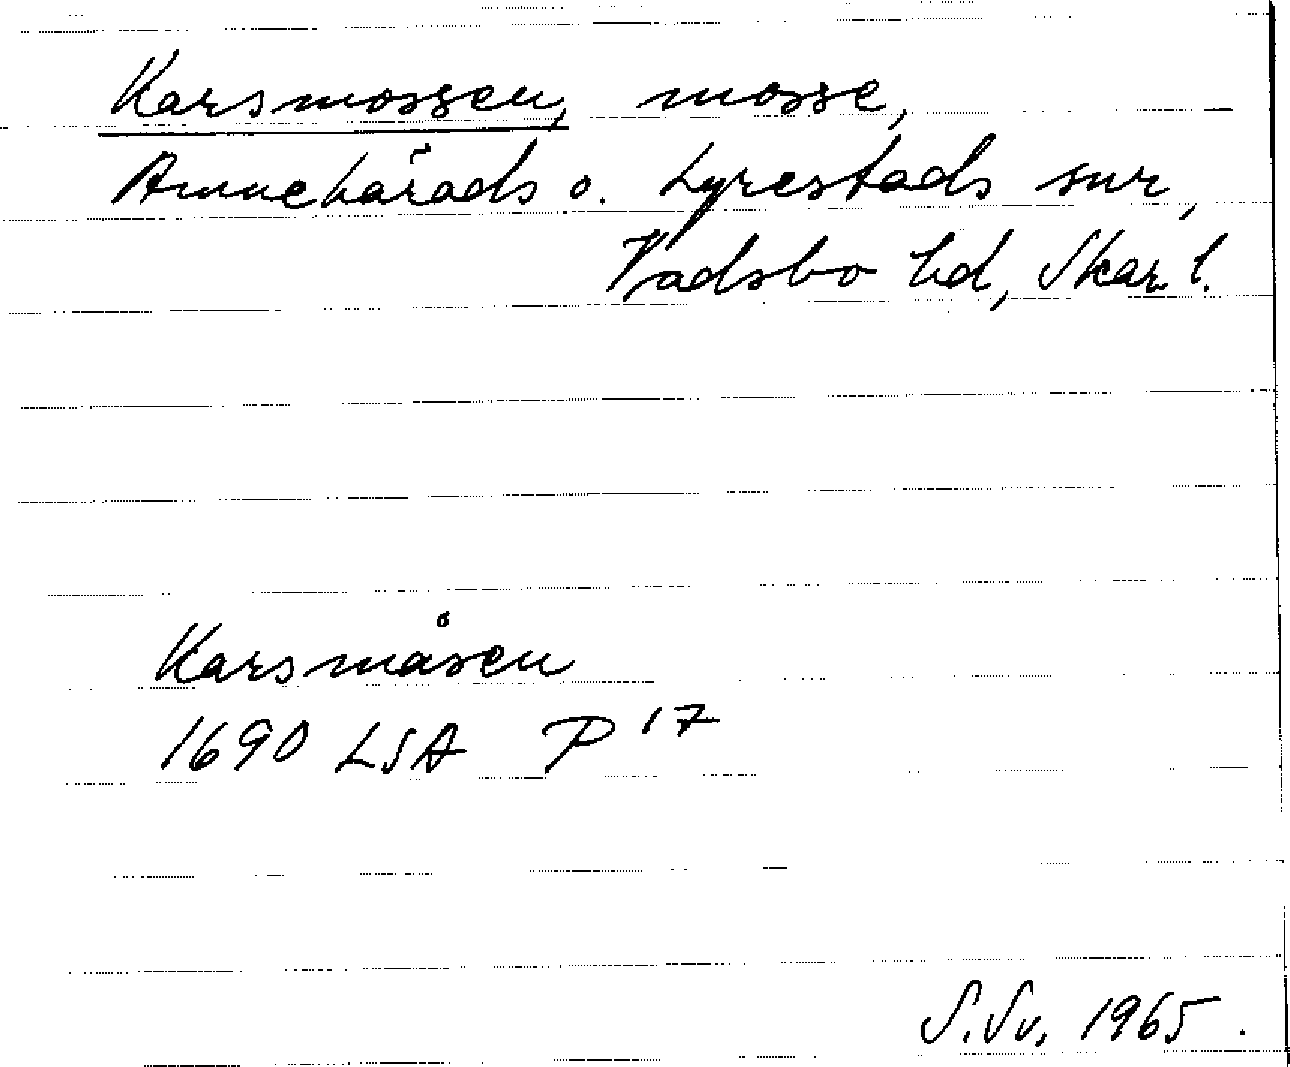 Karsmossen, mosse,
Amnehärads o. Lyrestads snr,
Vadsbo hd, Skar. l.
Karsmåsen
1690 LSA P 17
S. Sv. 1965.